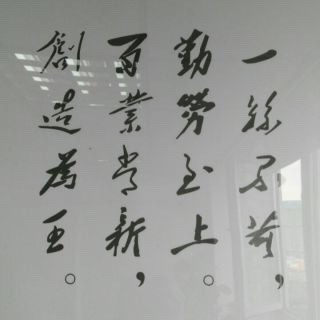 一絲不苟，
勤勞至上。
百業常新，
創造為王。